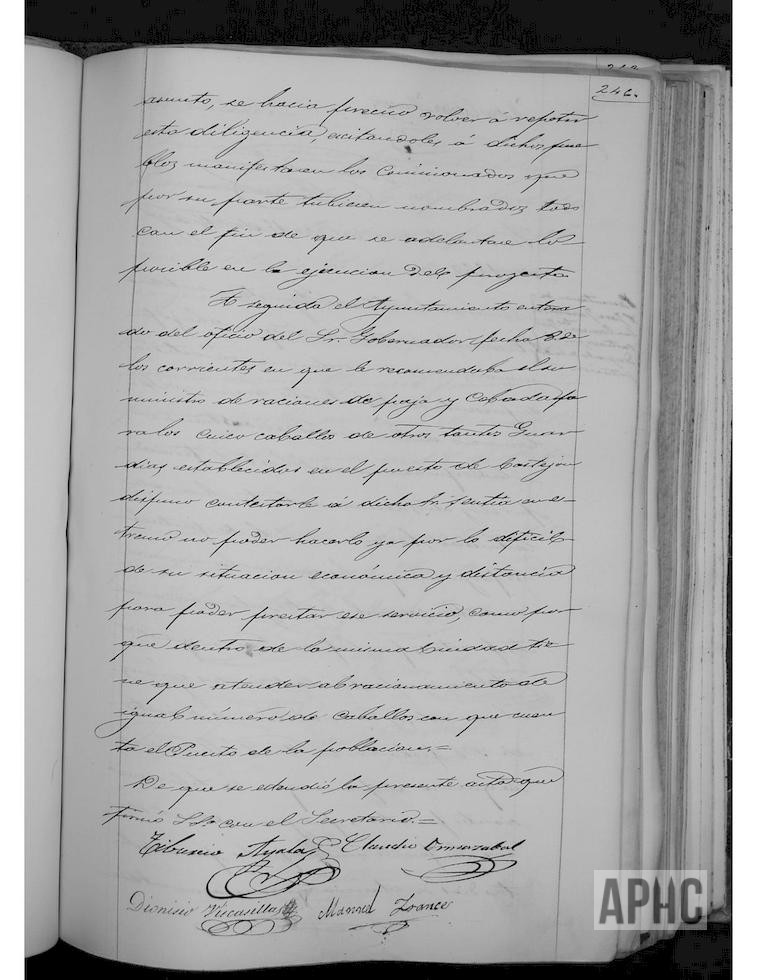 246.
asunto, se hacia preciso volver á repetir
esta diligencia, escitandoles á dichos pue
blos manifestasen los Comisionados que
por su parte tubiesen nombrados todo
con el fin de que se adelantase lo
posible en la ejecucion del proyecto
A seguida el Ayuntamiento entera
do del oficio del Sr. Gobernador fecha 6 de
los corrientes en que le recomendaba el su
ministro de raciones de paja y Cebada pa
ra los cinco caballos de otros tantos Guar
dias establecidos en el puesto de Castejon
dispuso contestarle á dicho Sr. sentia en es-
tremo no poder hacerlo ya por lo dificil
de su situacion económica y distancia
para poder prestar ese servicio, como por
que dentro de la misma Ciudad tie
ne que atender al racionamiento de
igual número de Caballos con que cuen
ta el Puesto de la poblacion.=
De que se estendió la presente acta que
firmó S.Sa. con el Secretario.=
Tiburcio Ayala Claudio Ormazabal
Dionisio Viscasillas Manuel Frances
APHC